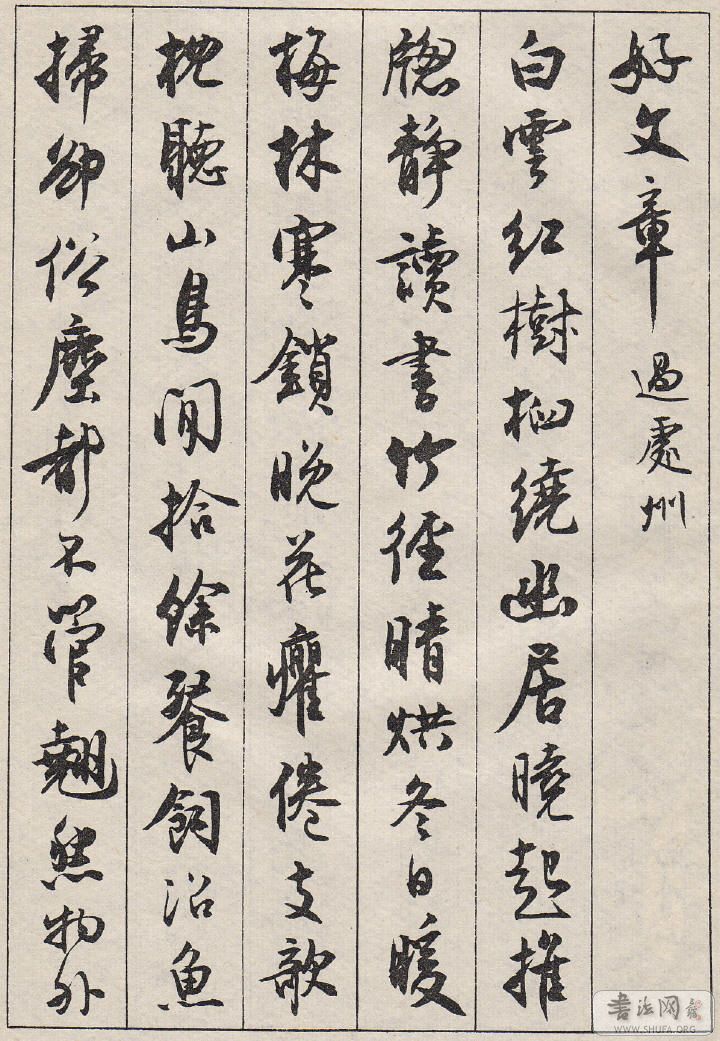 好文章 過處州
白雲紅樹栖繞幽居曉起推
窗靜讀書竹徑晴烘冬日暖
梅林寒鎖晚花癯倦支欹
枕聽山鳥閒拾餘餐飼沼魚
掃卻俗塵都不管翹然物外
書法网
WWW.SHUFA.ORG